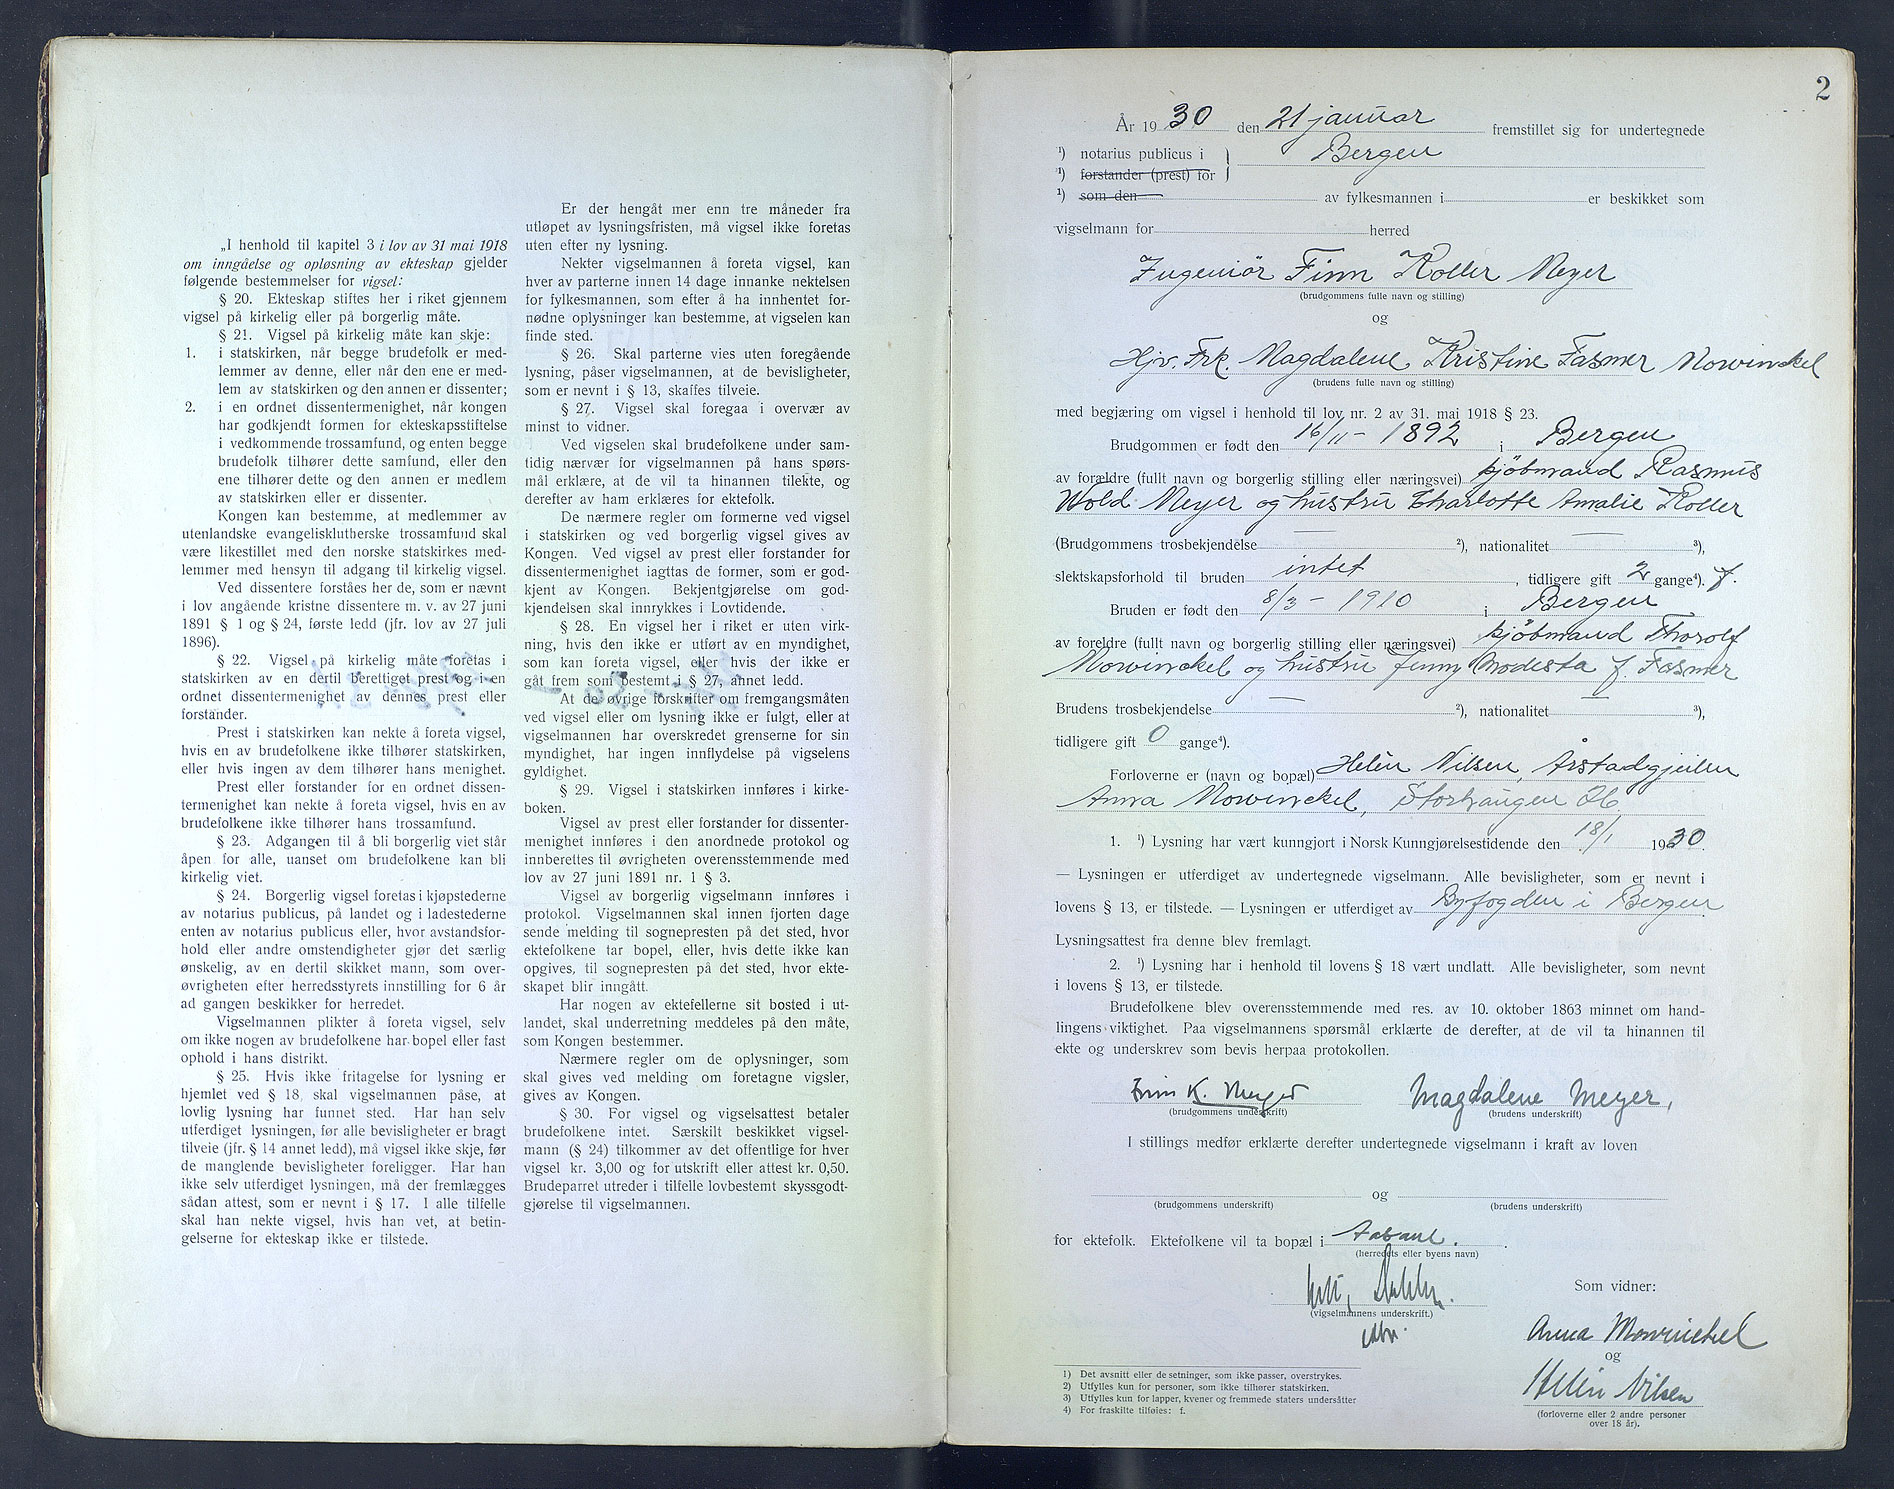 „I henhold til kapitel 3 i lov av 31 mai 1918
om inngåelse og opløsning av ekteskap gjelder
følgende bestemmelser for vigsel:
§ 20. Ekteskap stiftes her i riket gjennem
vigsel på kirkelig eller på borgerlig måte.
§ 21. Vigsel på kirkelig måte kan skje:
1. i statskirken, når begge brudefolk er med-
lemmer av denne, eller når den ene er med-
lem av statskirken og den annen er dissenter;
2. i en ordnet dissentermenighet, når kongen
har godkjendt formen for ekteskapsstiftelse
i vedkommende trossamfund, og enten begge
brudefolk tilhører dette samfund, eller den
ene tilhører dette og den annen er medlem
av statskirken eller er dissenter.
Kongen kan bestemme, at medlemmer av
utenlandske evangeliskluthers­ke trossamfund skal
være likestillet med den norske statskirkes med-
lemmer med hensyn til adgang til kirkelig vigsel.
Ved dissentere forståes her de, som er nævnt
i lov angående kristne dissentere m. v. av 27 juni
1891 § 1 og § 24, første ledd (jfr. lov av 27 juli
1896).
§ 22. Vigsel på kirkelig måte foretas i
statskirken av en dertil berettiget prest og i en
ordnet dissentermenighet av dennes prest eller
forstander.
Prest i statskirken kan nekte å foreta vigsel,
hvis en av brudefolkene ikke tilhører statskirken,
eller hvis ingen av dem tilhører hans menighet.
Prest eller forstander for en ordnet dissen-
termenighet kan nekte å foreta vigsel, hvis en av
brudefolkene ikke tilhører hans trossamfund.
§ 23. Adgangen til å bli borgerlig viet står
åpen for alle, uanset om brudefolkene kan bli
kirkelig viet.
§ 24. Borgerlig vigsel foretas i kjøpstederne
av notarius publicus, på landet og i ladestederne
enten av notarius publicus eller, hvor avstandsfor-
hold eller andre omstendigheter gjør det særlig
ønskelig, av en dertil skikket mann, som over-
øvrigheten efter herredsstyrets innstilling for 6 år
ad gangen beskikker for herredet.
Vigselmannen plikter å foreta vigsel, selv
om ikke nogen av brudefolkene har bopel eller fast
ophold i hans distrikt.
§ 25. Hvis ikke fritagelse for lysning er
hjemlet ved § 18, skal vigselmannen påse, at
lovlig lysning har funnet sted. Har han selv
utferdiget lysningen, før alle bevisligheter er bragt
tilveie (jfr. § 14 annet ledd), må vigsel ikke skje, før
de manglende bevisligheter foreligger. Har han
ikke selv utferdiget lysningen, må der fremlægges
sådan attest, som er nevnt i § 17. I alle tilfelle
skal han nekte vigsel, hvis han vet, at betin-
gelserne for ekteskap ikke er tilstede.
Er der hengåt mer enn tre måneder fra
utløpet av lysningsfristen, må vigsel ikke foretas
uten efter ny lysning.
Nekter vigselmannen å foreta vigsel, kan
hver av parterne innen 14 dage innanke nektelsen
for fylkesmannen, som efter å ha innhentet for-
nødne oplysninger kan bestemme, at vigselen kan
finde sted.
§ 26. Skal parterne vies uten foregående
lysning, påser vigselmannen, at de bevisligheter,
som er nevnt i § 13, skaffes tilveie.
§ 27. Vigsel skal foregaa i overvær av
minst to vidner.
Ved vigselen skal brudefolkene under sam-
tidig nærvær for vigselmannen på hans spørs-
mål erklære, at de vil ta hinannen tilekte, og
derefter av ham erklæres for ektefolk.
De nærmere regler om formerne ved vigsel
i statskirken og ved borgerlig vigsel gives av
Kongen. Ved vigsel av prest eller forstander for
dissentermenighet iagttas de former, som er god-
kjent av Kongen. Bekjentgjørelse om god-
kjendelsen skal innrykkes i Lovtidende.
§ 28. En vigsel her i riket er uten virk-
ning, hvis den ikke er utført av en myndighet,
som kan foreta vigsel, eller hvis der ikke er
gåt frem som bestemt i § 27, annet ledd.
At de øvrige forskrifter om fremgangsmåten
ved vigsel eller om lysning ikke er fulgt, eller at
vigselmannen har overskredet grenserne for sin
myndighet, har ingen innflydelse på vigselens
gyldighet.
§ 29. Vigsel i statskirken innføres i kirke-
boken.
Vigsel av prest eller forstander for dissenter-
menighet innføres i den anordnede protokol og
innberettes til øvrigheten overensstemmende med
lov av 27 juni 1891 nr. 1 § 3.
Vigsel av borgerlig vigselmann innføres i
protokol. Vigselmannen skal innen fjorten dage
sende melding til sognepresten på det sted, hvor
ektefolkene tar bopel, eller, hvis dette ikke kan
opgives, til sognepresten på det sted, hvor ekte-
skapet blir inngått.
Har nogen av ektefellerne sit bosted i ut-
landet, skal underretning meddeles på den måte,
som Kongen bestemmer.
Nærmere regler om de oplysninger, som
skal gives ved melding om foretagne vigsler,
gives av Kongen.
§ 30. For vigsel og vigselsattest betaler
brudefolkene intet. Særskilt beskikket vigsel-
mann (§ 24) tilkommer av det offentlige for hver
vigsel kr. 3,00 og for utskrift eller attest kr. 0,50.
Brudeparret utreder i tilfelle lovbestemt skyssgodt-
gjørelse til vigselmannen.
2
År 1930 den 21 januar fremstillet sig for undertegnede
¹) notarius publicus i Bergen
¹) forstander (prest) for
¹) som den av fylkesmannen i er beskikket som
vigselmann for herred
Ingeniør Finn Koller Meyer
(brudgommens fulle navn og stilling)
og
Hjv. Frk. Magdalene Kristine Fasmer Mowinckel
(brudens fulle navn og stilling)
med begjæring om vigsel i henhold til lov nr. 2 av 31. mai 1918 § 23.
Brudgommen er født den 16/11 - 1892 i Bergen
av forældre (fullt navn og borgerlig stilling eller næringsvei) kjøbmand Rasmus
Wold Meyer og hustru Charlotte Amalie Koller
(Brudgommens trosbekjendelse — ²), nationalitet — ³),
slektskapsforhold til bruden intet, tidligere gift 2 gange⁴). f.
Bruden er født den 8/3 - 1910 i Bergen
av foreldre (fullt navn og borgerlig stilling eller næringsvei) kjøbmand Thorolf
Mowinckel og hustru Jenny Modesta f. Fasmer
Brudens trosbekjendelse — ²), nationalitet — ³),
tidligere gift 0 gange⁴).
Forloverne er (navn og bopæl) Helen Nilsen, Årstadgjeilen
Anna Mowinckel, Storhaugen 26
1. ¹) Lysning har vært kunngjort i Norsk Kunngjørelsestidende den 18/1 1930.
— Lysningen er utferdiget av undertegnede vigselmann. Alle bevisligheter, som er nevnt i
lovens § 13, er tilstede. — Lysningen er utferdiget av Byfogden i Bergen
Lysningsattest fra denne blev fremlagt.
2. ¹) Lysning har i henhold til lovens § 18 vært undlatt. Alle bevisligheter, som nevnt
i lovens § 13, er tilstede.
Brudefolkene blev overensstemmende med res. av 10. oktober 1863 minnet om hand-
lingens viktighet. Paa vigselmannens spørsmål erklærte de derefter, at de vil ta hinannen til
ekte og underskrev som bevis herpaa protokollen.
Finn K. Meyer Magdalene Meyer,
(brudgommens underskrift) (brudens underskrift)
I stillings medfør erklærte derefter undertegnede vigselmann i kraft av loven
og
(brudgommens underskrift) (brudens underskrift)
for ektefolk. Ektefolkene vil ta bopæl i
(herredets eller byens navn)
(vigselmannens underskrift.)
Som vidner:
Anna Mowinckel
og
Helen Nilsen
(forloverne eller 2 andre personer
over 18 år).
1) Det avsnitt eller de setninger, som ikke passer, overstrykes.
2) Utfylles kun for personer, som ikke tilhører statskirken.
3) Utfylles kun for lapper, kvener og fremmede staters undersåtter
4) For fraskilte tilføies: f.